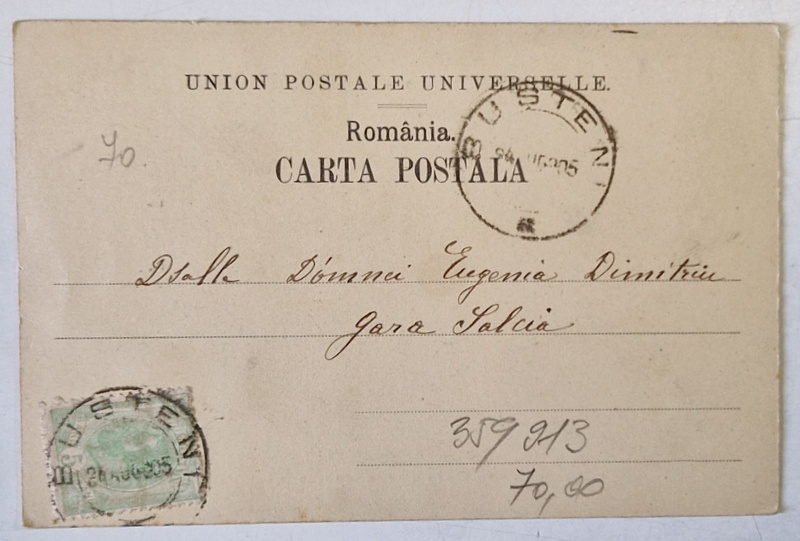 UNION POSTALE UNIVERSELLE.
România.
CARTA POSTALA
BUSTENI
24 AUG 905
70.
Dsalle Domnei Eugenia Dimitriu
gara Salcia
BUSTENI
24 AUG 905
5
359 913
70,00